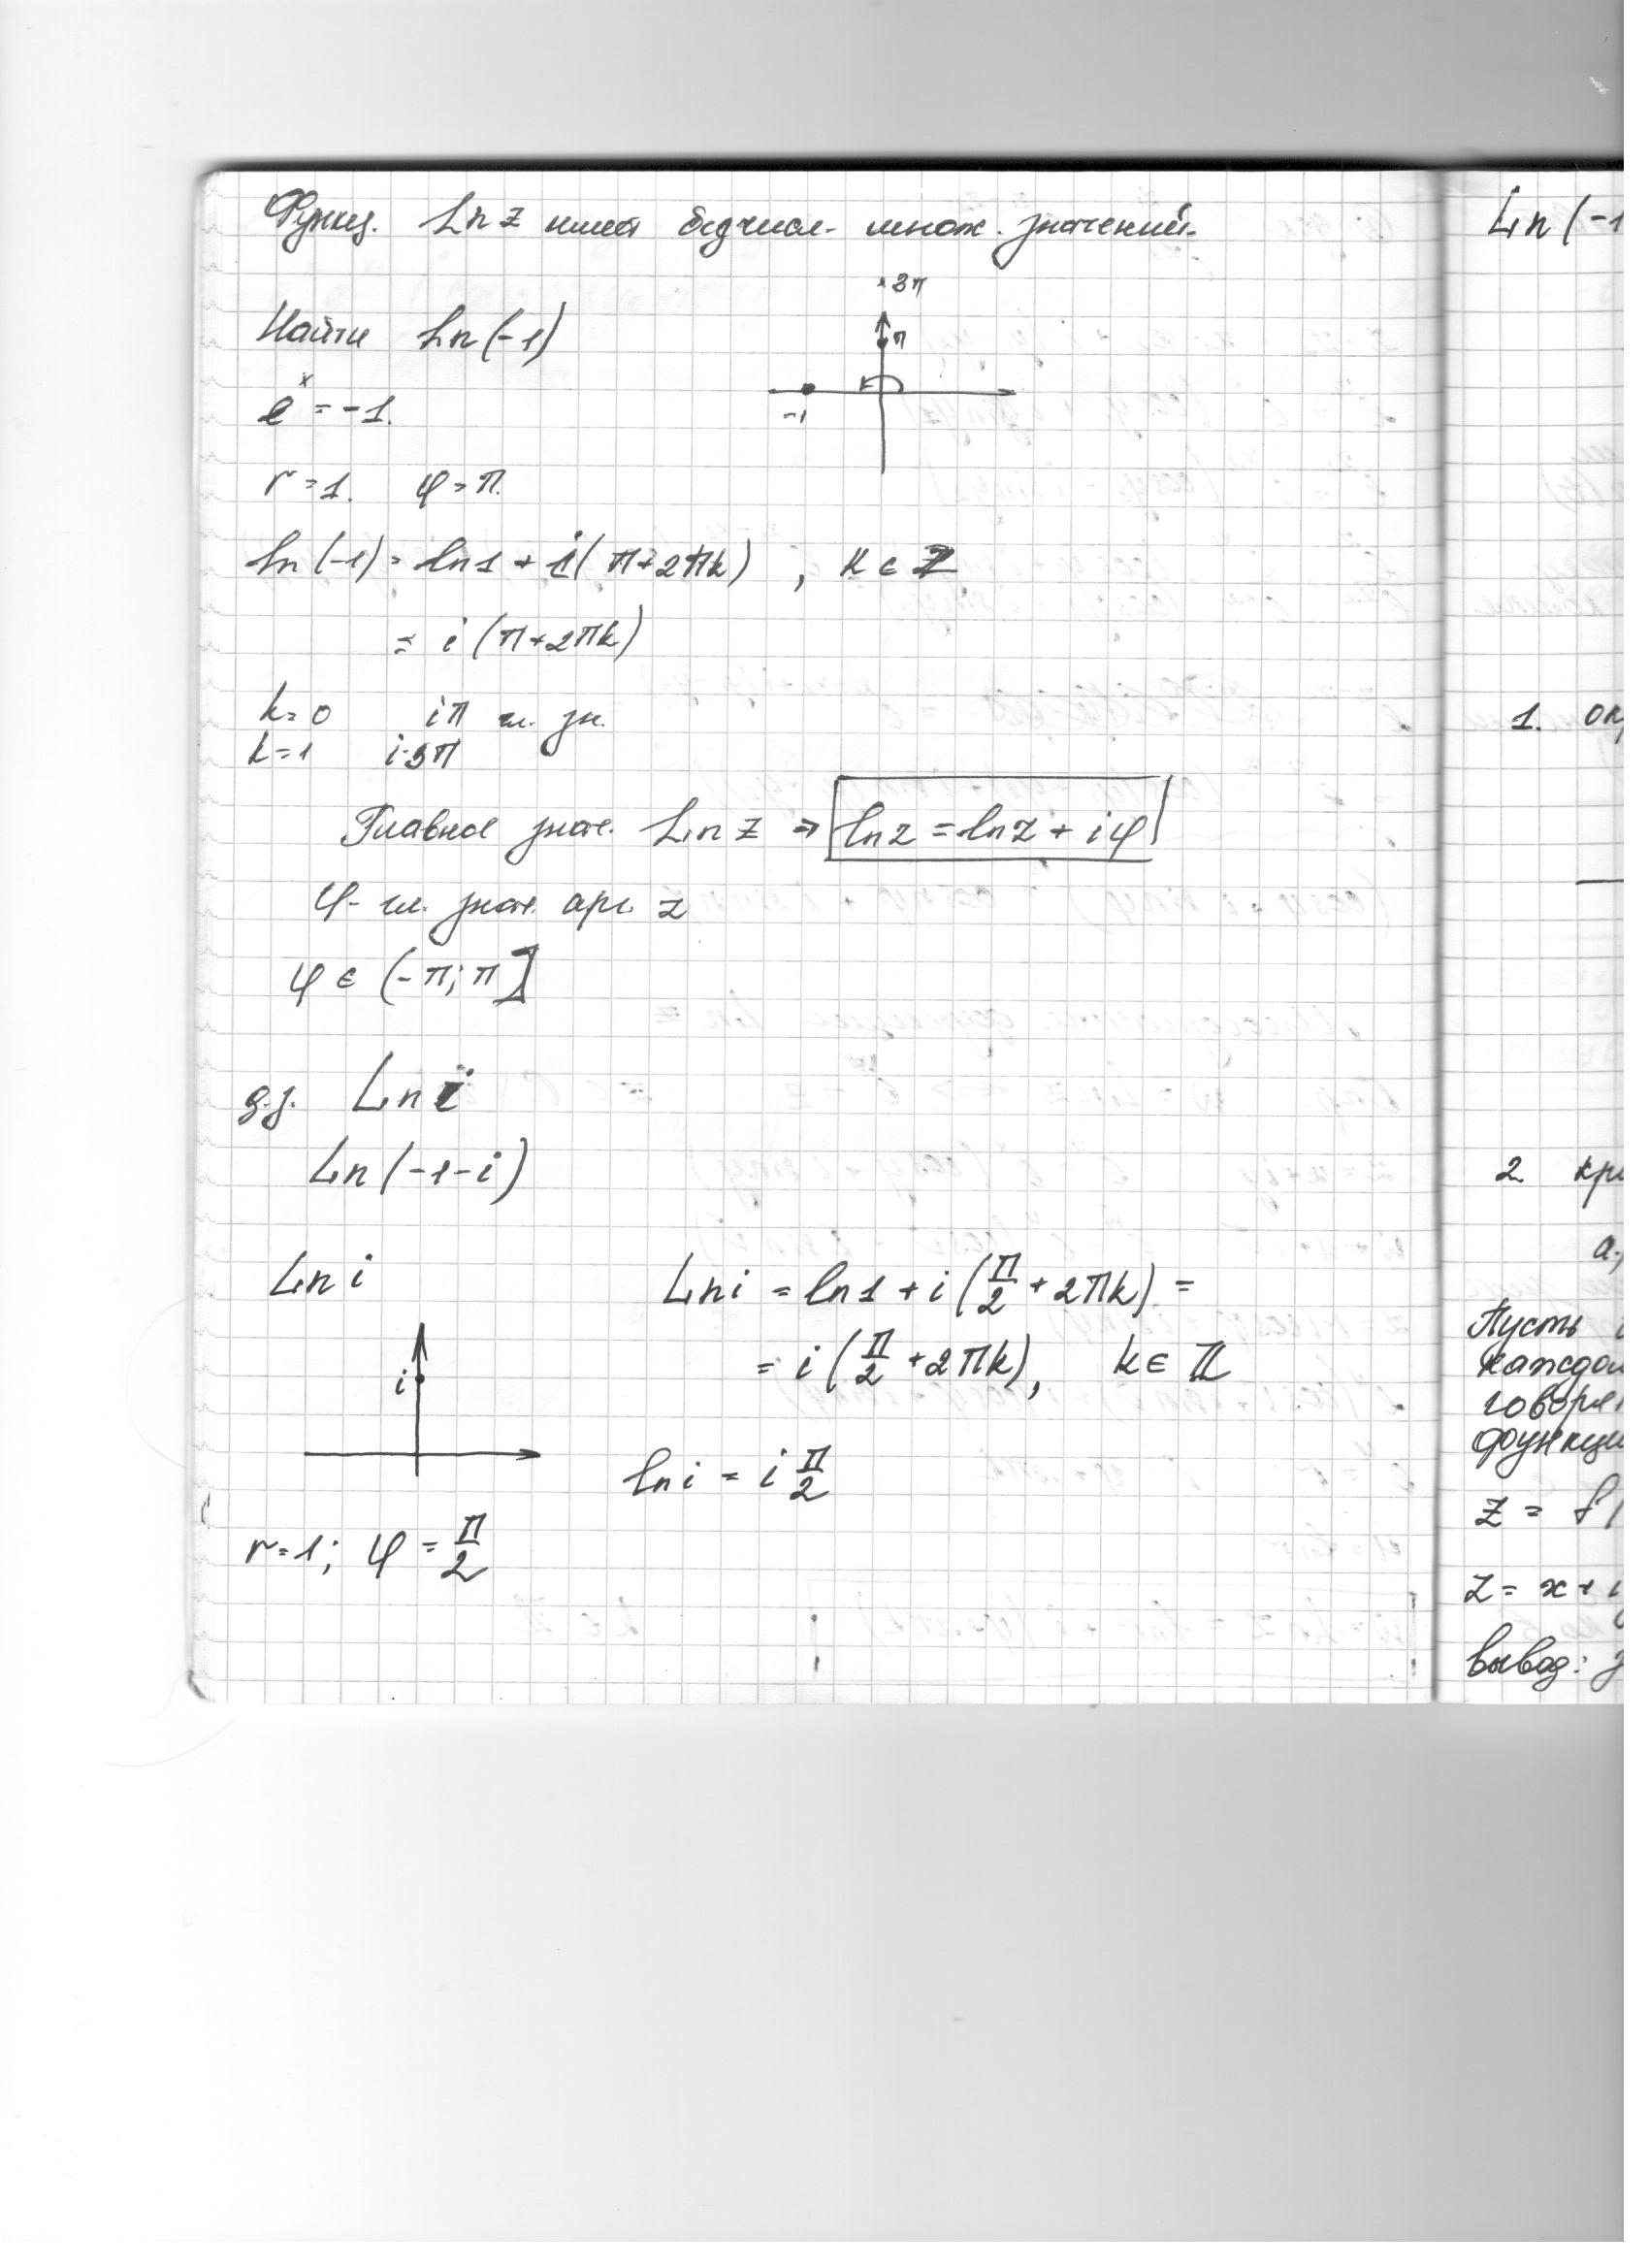 Функц. Ln z имеет бесчисл. множ. значений.
3π
Найти Ln(-1)
π
e^x = -1.
-1
r = 1. φ = π.
Ln(-1) = ln1 + i(π+2πk), k ∈ Z
= i(π+2πk)
k=0 iπ гл. зн.
k=1 i·3π
Главное знач. Ln z ⇒ ln z = ln r + iφ
φ - гл. знач. арг. z
φ ∈ (-π; π]
д.з. Ln i
Ln(-1-i)
Ln i
Ln i = ln1 + i(π/2 + 2πk) =
= i(π/2 + 2πk), k ∈ Z
i
ln i = i π/2
r=1; φ = π/2
Ln(-1
1.
2
а,
Пусть
говоря
функци
z = f(
z = x + i
вывод: